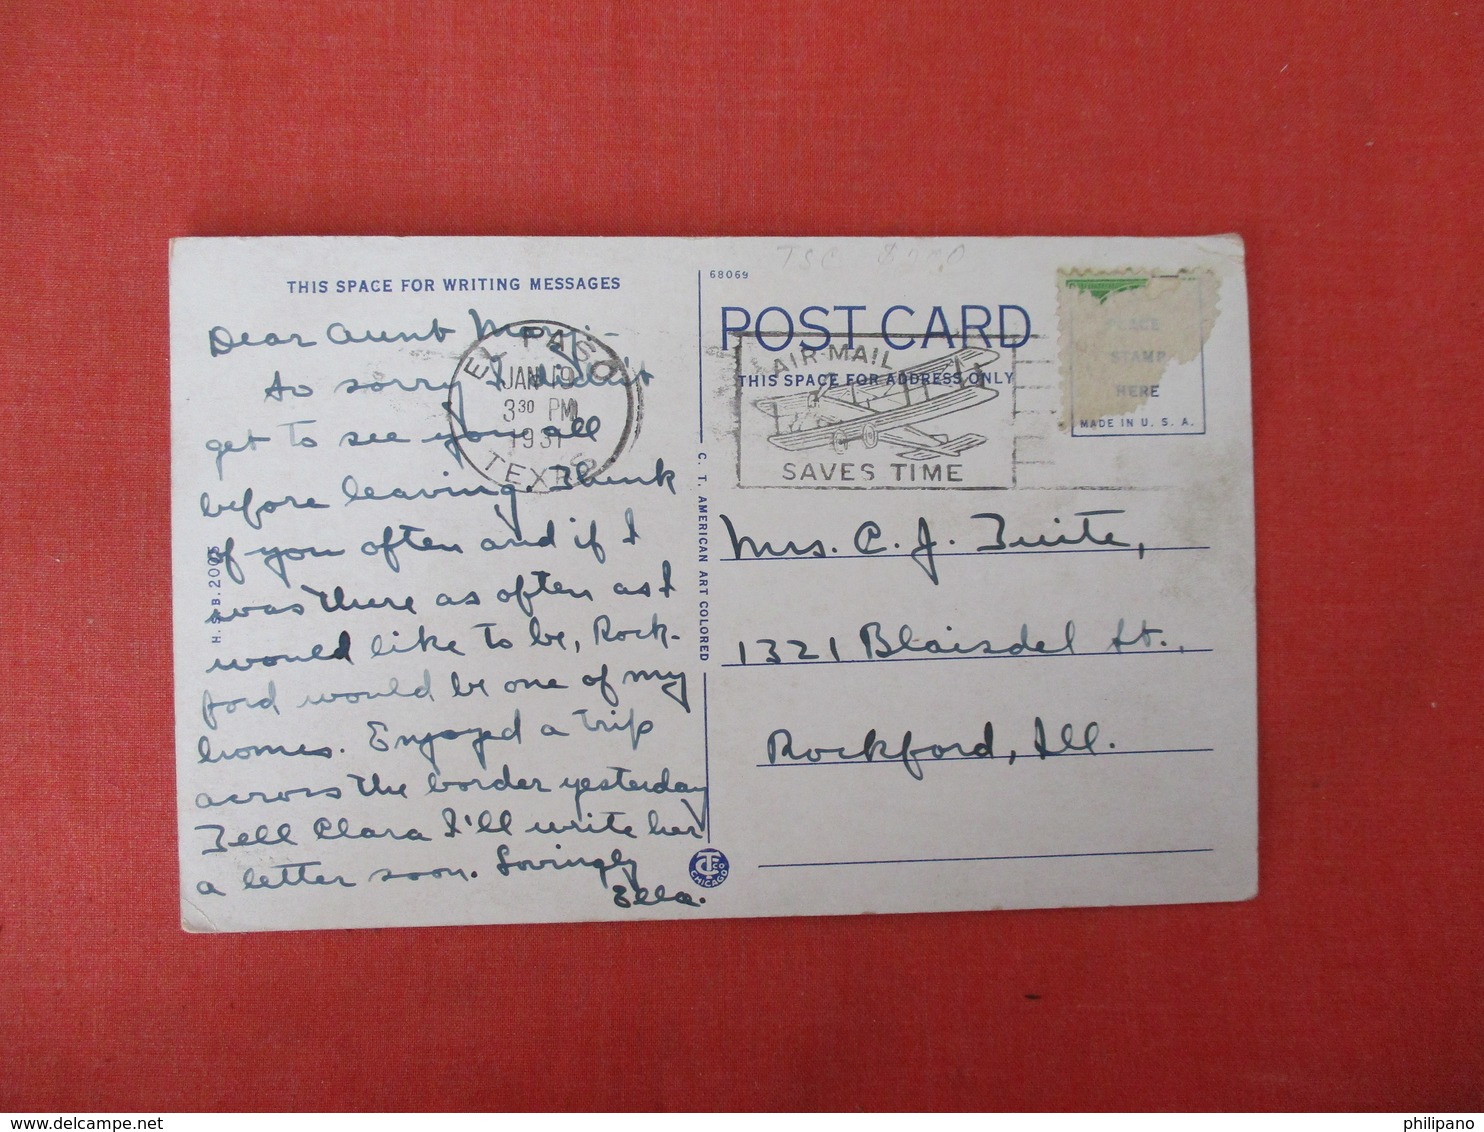 THIS SPACE FOR WRITING MESSAGES
Dear Aunt Mary:-
So sorry I didn't
get to see you all
before leaving. Think
of you often and if I
was there as often as I
would like to be, Rock-
ford would be one of my
homes. Enjoyed a trip
across the border yesterday
Tell Clara I'll write her
a letter soon. Lovingly
Ella.
EL PASO
JAN 19
3 30 PM
1931
TEXAS
H. S. B. 2005
C. T. AMERICAN ART COLORED
CHICAGO
68069
POST CARD
THIS SPACE FOR ADDRESS ONLY
AIR-MAIL
SAVES TIME
PLACE
STAMP
HERE
MADE IN U. S. A.
Mrs. C. J. Tuite,
1321 Blaisdel St.,
Rockford, Ill.
delcampe.net
philipano